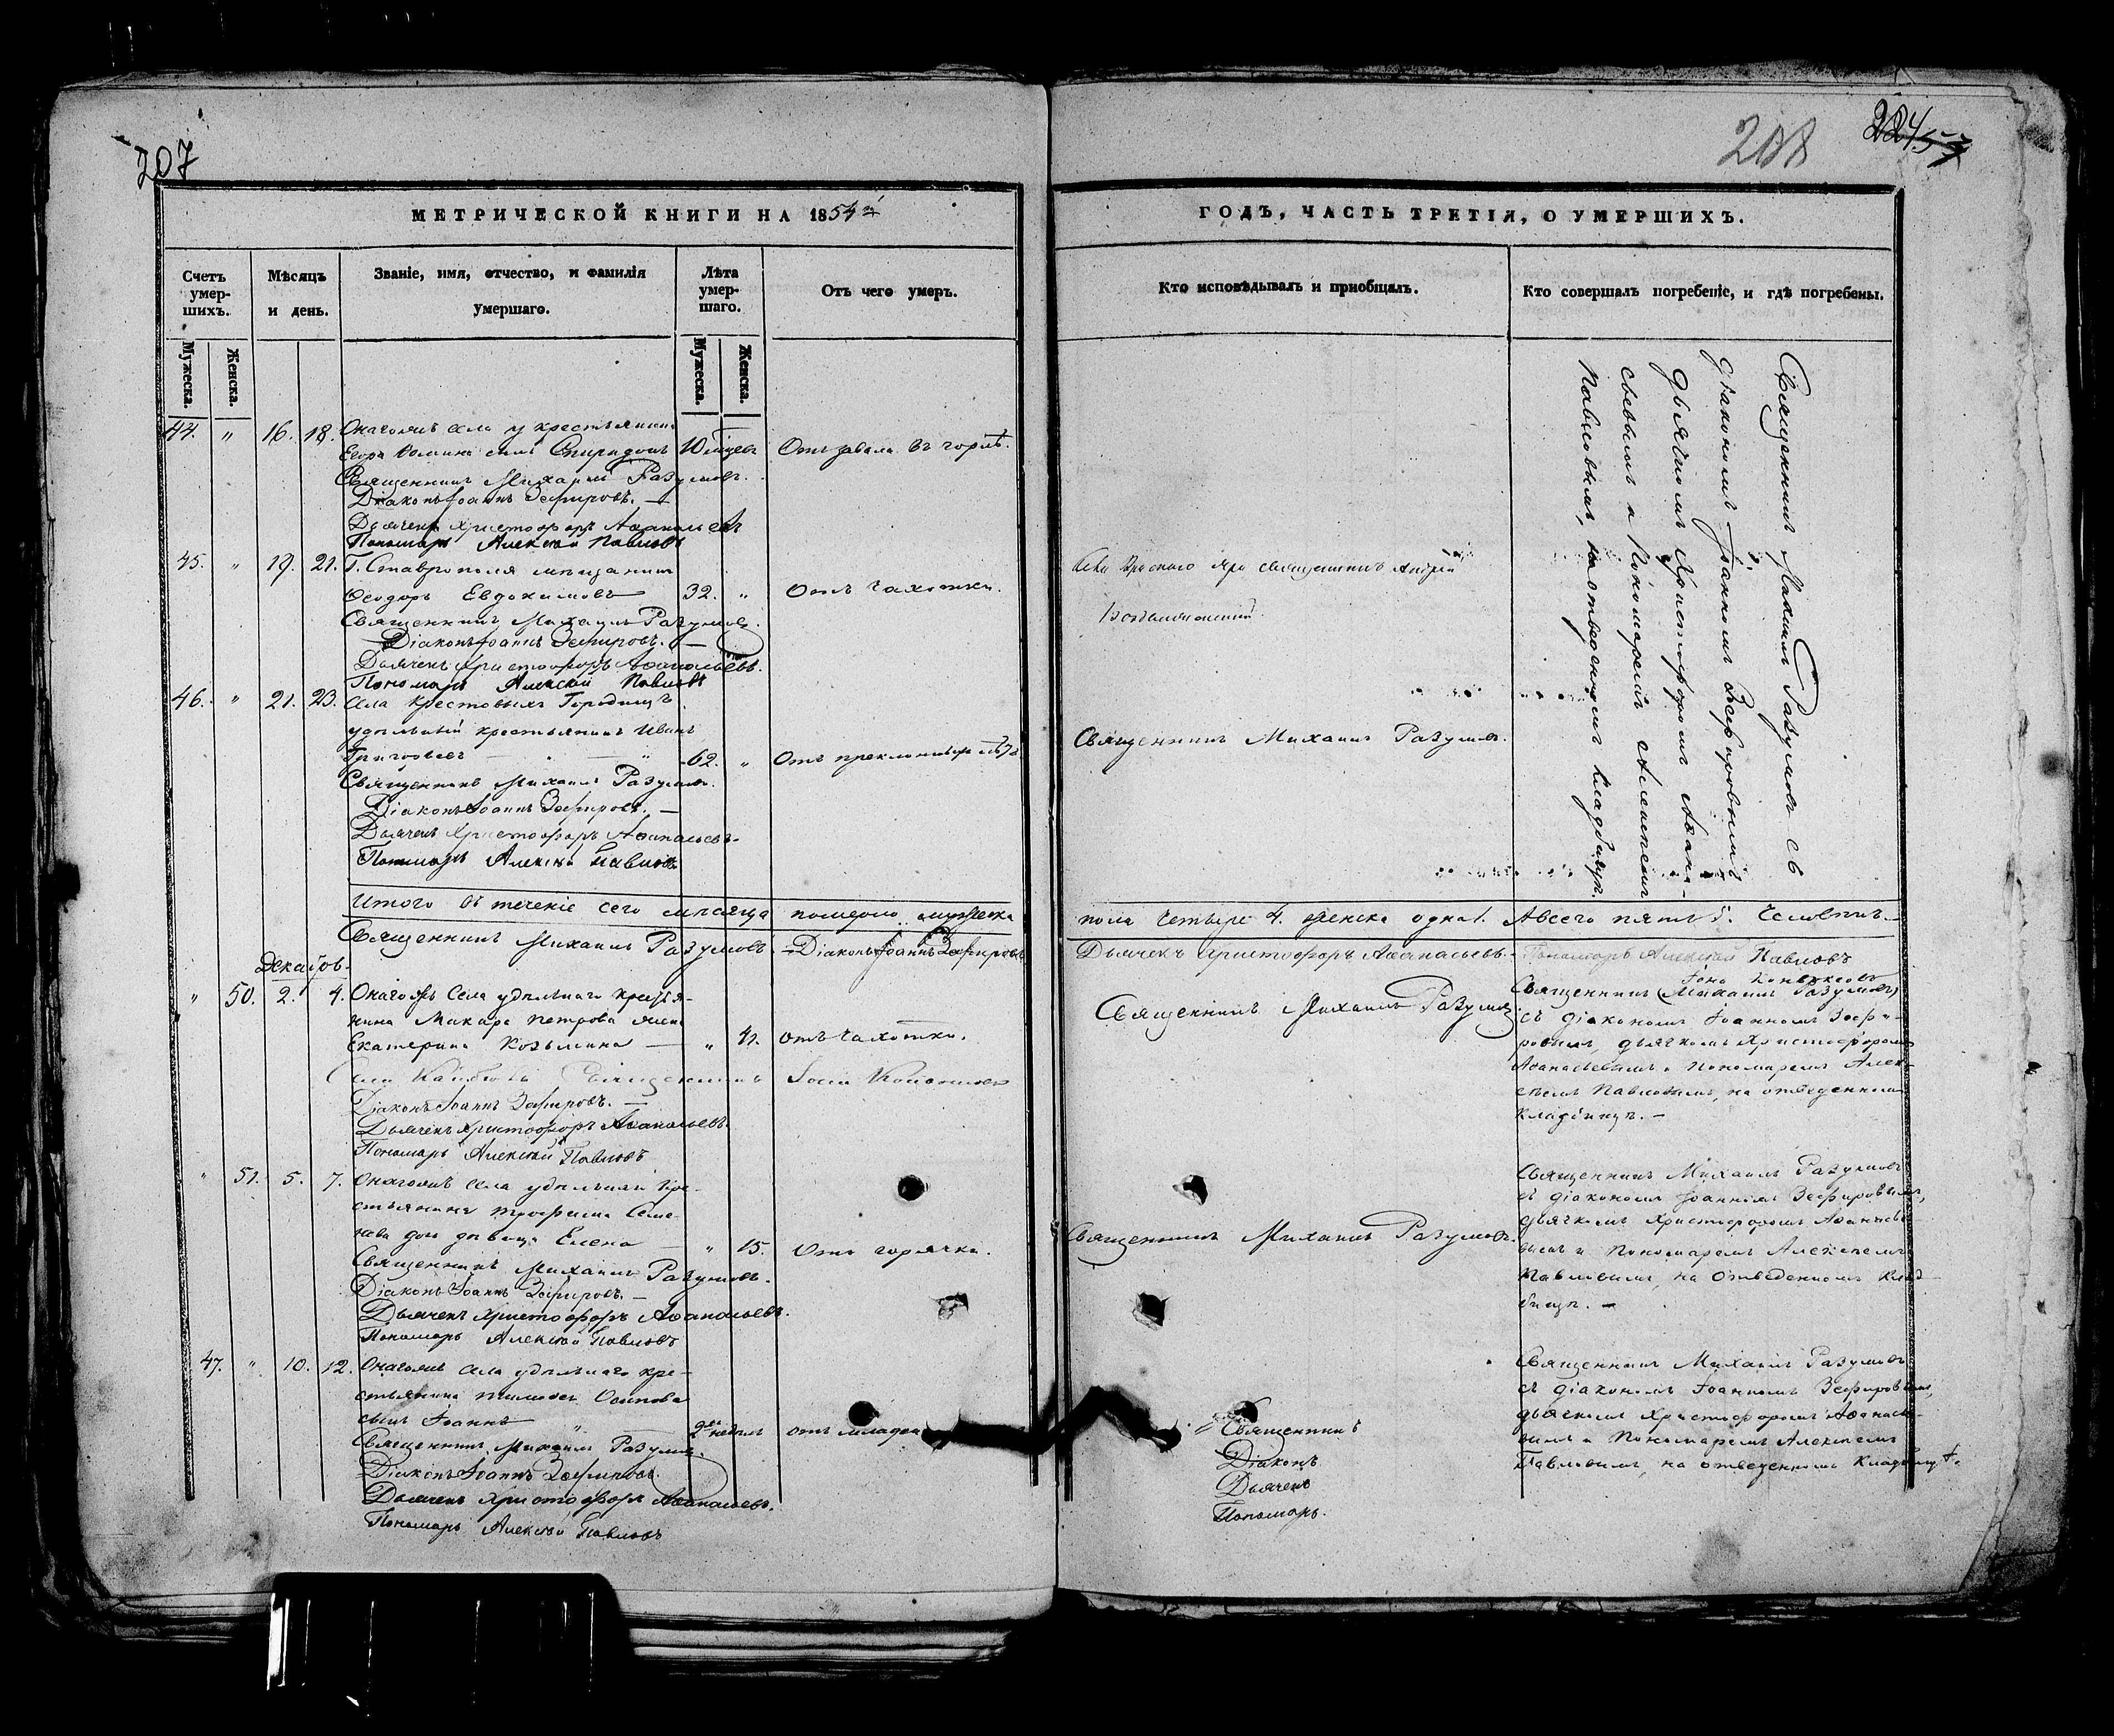 207
МЕТРИЧЕСКОЙ КНИГИ НА 1854й
Счетъ умер-шихъ.
Мѣсяцъ и день.
Званіе, имя, отчество, и фамилія умершаго.
Лѣта умер-шаго.
Отъ чего умеръ.
Мужеска.
Женска.
Мужеска.
Женска.
44. " 16. 18. Онагожъ села у крестьянина
Егора сынъ Спиридонъ Отъ завала въ горлѣ.
Священникъ Михаилъ Разумовъ.
Діаконъ Іоаннъ Зефировъ. —
Дьячекъ Христофоръ Аѳанасьевъ
Пономарь Алексѣй Павловъ
45. " 19. 21. Г. Ставрополя мѣщанинъ
Ѳеодоръ Евдокимовъ 32. " Отъ чахотки.
Священникъ Михаилъ Разумовъ.
Діаконъ Іоаннъ Зефировъ. —
Дьячекъ Христофоръ Аѳанасьевъ.
Пономарь Алексѣй Павловъ
46. " 21. 23. Села Крестовыхъ Городищъ
удѣльный крестьянинъ Иванъ
Григорьевъ 62. " Отъ преклонныхъ лѣтъ
Священникъ Михаилъ Разумовъ.
Діаконъ Іоаннъ Зефировъ. —
Дьячекъ Христофоръ Аѳанасьевъ.
Пономарь Алексѣй Павловъ
Итого въ теченіе сего мѣсяца померло мужеска
Священникъ Михаилъ Разумовъ. Діаконъ Іоаннъ Зефировъ
" 50. 2. 4. Онагожъ Села удѣльнаго крестья-
нина Макара Петрова жена
Екатерина Козьмина — " отъ чахотки.
Священникъ
Діаконъ Іоаннъ Зефировъ. —
Дьячекъ Христофоръ Аѳанасьевъ.
Пономарь Алексѣй Павловъ
" 51. 5. 7. Онагожъ села удѣльнаго кре-
стьянина Трофима Семе-
нова дочь дѣвица Елена " 15. Отъ горячки.
Священникъ Михаилъ Разумовъ.
Діаконъ Іоаннъ Зефировъ. —
Дьячекъ Христофоръ Аѳанасьевъ.
Пономарь Алексѣй Павловъ
47. " 10. 12. Онагожъ села удѣльнаго кре-
стьянина Осипова
сынъ Іоаннъ 2хъ недѣль отъ
Священникъ Михаилъ Разумовъ.
Діаконъ Іоаннъ Зефировъ.
Дьячекъ Христофоръ Аѳанасьевъ.
Пономарь Алексѣй Павловъ
208
ГОДЪ, ЧАСТЬ ТРЕТІЯ, О УМЕРШИХЪ.
Кто исповѣдывалъ и пріобщалъ.
Кто совершалъ погребеніе, и гдѣ погребены.
Священникъ Михаилъ Разумовъ съ
діакономъ Іоанномъ Зефировымъ
дьячкомъ Христофоромъ Аѳана-
сьевымъ и Пономаремъ Алексѣемъ
Павловымъ, на отведенномъ кладбищѣ.
Яра священникъ Андрей
Священникъ Михаилъ Разумовъ.
пола четыре 4. женска одна 1. А всего пять 5. Человѣкъ.
Дьячекъ Христофоръ Аѳанасьевъ. Пономарь Алексѣй Павловъ
Священникъ Михаилъ Разумовъ
Священникъ (Михаилъ Разумовъ)
съ діакономъ Іоанномъ Зефи-
ровымъ, дьячкомъ Христофоромъ
Аѳанасьевымъ и пономаремъ Алек-
сѣемъ Павловымъ, на отведенномъ
кладбищѣ. —
Священникъ Михаилъ Разумовъ.
Священникъ Михаилъ Разумовъ
съ діакономъ Іоанномъ Зефировымъ,
дьячкомъ Христофоромъ Аѳанасье-
вымъ и Пономаремъ Алексѣемъ
Павловымъ, на отведенномъ клад-
бищѣ. —
Священникъ
Діаконъ
Дьячекъ
Пономарь.
Священникъ Михаилъ Разумовъ
съ діакономъ Іоанномъ Зефировымъ,
дьячкомъ Христофоромъ Аѳанасье-
вымъ и Пономаремъ Алексѣемъ
Павловымъ, на отведенномъ кладбищѣ.